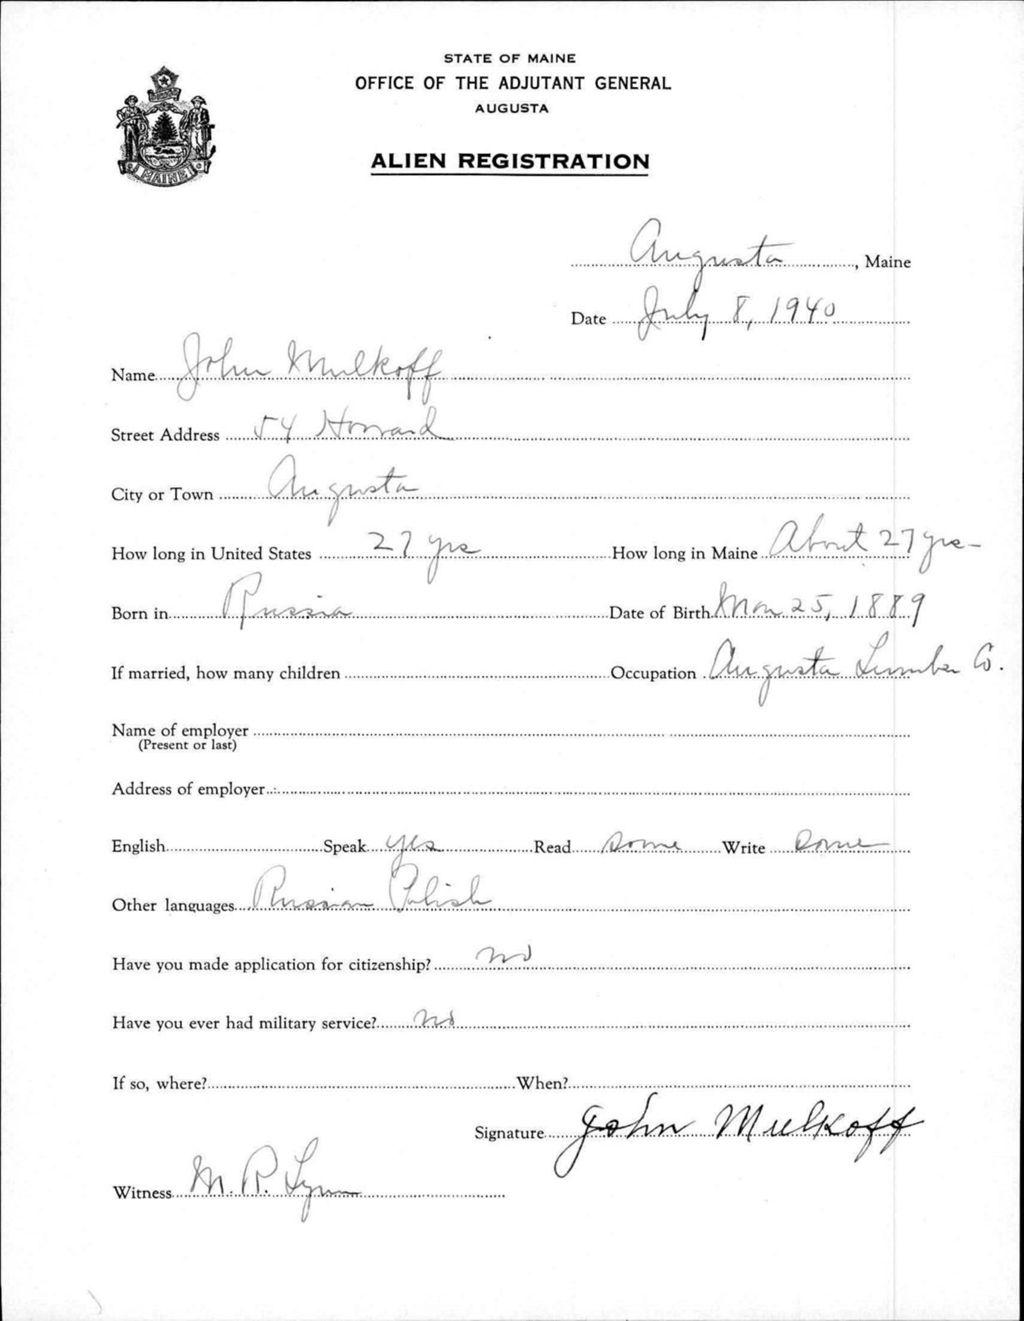 STATE OF MAINE
OFFICE OF THE ADJUTANT GENERAL
AUGUSTA
ALIEN REGISTRATION
MAINE
Augusta, Maine
Date July 8, 1940
Name John Mulkoff
Street Address 54 Howard
City or Town Augusta
How long in United States 27 yrs How long in Maine About 27 yrs
Born in Russia Date of Birth Mar 25, 1889
If married, how many children Occupation Augusta Lumber Co.
Name of employer
(Present or last)
Address of employer
English Speak yes Read some Write some
Other languages Russian Polish
Have you made application for citizenship? no
Have you ever had military service? no
If so, where? When?
Signature John Mulkoff
Witness M. R. Lynn